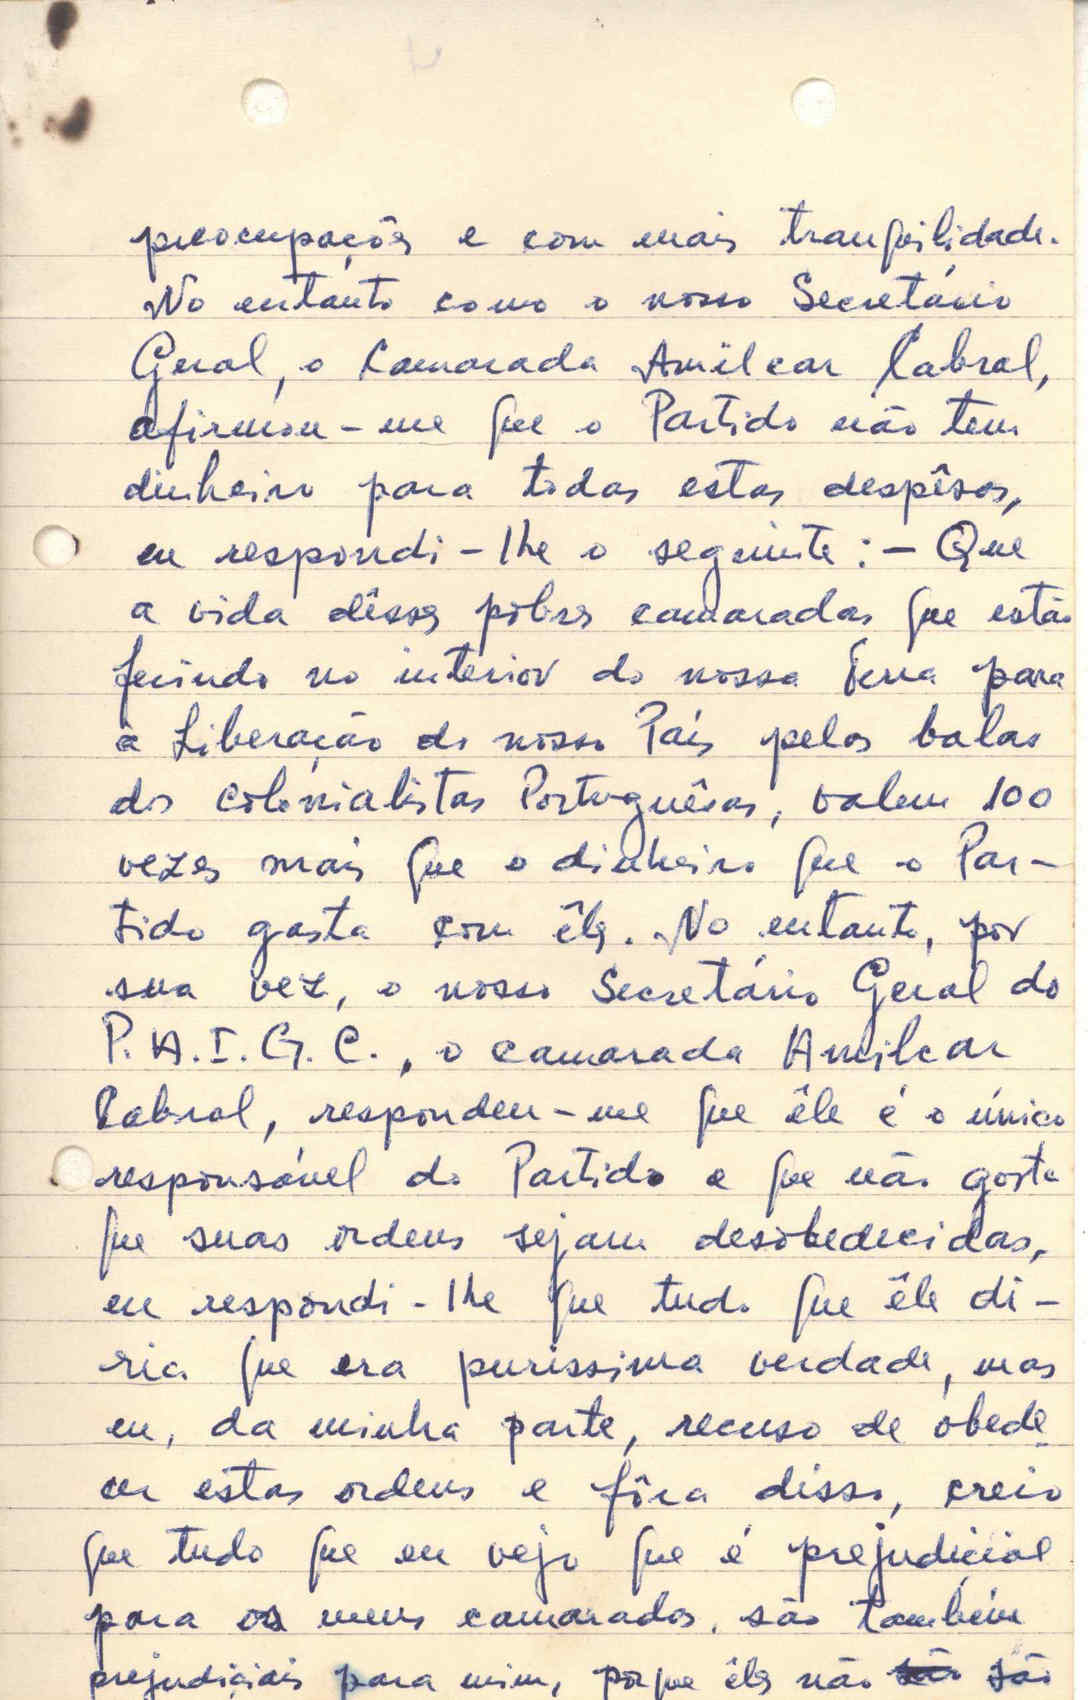 preocupações e com mais tranquilidade.
No entánto como o nosso Secretário
Geral, o Camarada Amílcar Cabral,
afirmou-me que o Partido não tem
dinheiro para todas estas despêsas,
eu respondi-lhe o seguinte: - Que
a vida dêsses pobres camaradas que estão
ferindo no interior da nossa Terra para
a Liberação do nosso País pelas balas
dos colonialistas Portuguêsas, valem 100
vezes mais que o dinheiro que o Par-
tido gasta com êles. No entanto, por
sua vez, o nosso Secretário Geral do
P.A.I.G.C., o camarada Amilcar
Cabral, respondeu-me que êle é o único
responsável do Partido e que não gosta
que suas ordens sejam desobedecidas,
eu respondi-lhe que tudo que êle di-
ria que era puríssima verdade, mas
eu, da minha parte, recuso de obede
cer estas ordens e fóra disso, creio
que tudo que eu vejo que é prejudicial
para os meus camaradas, são também
prejudiciais para mim, porque êles não são